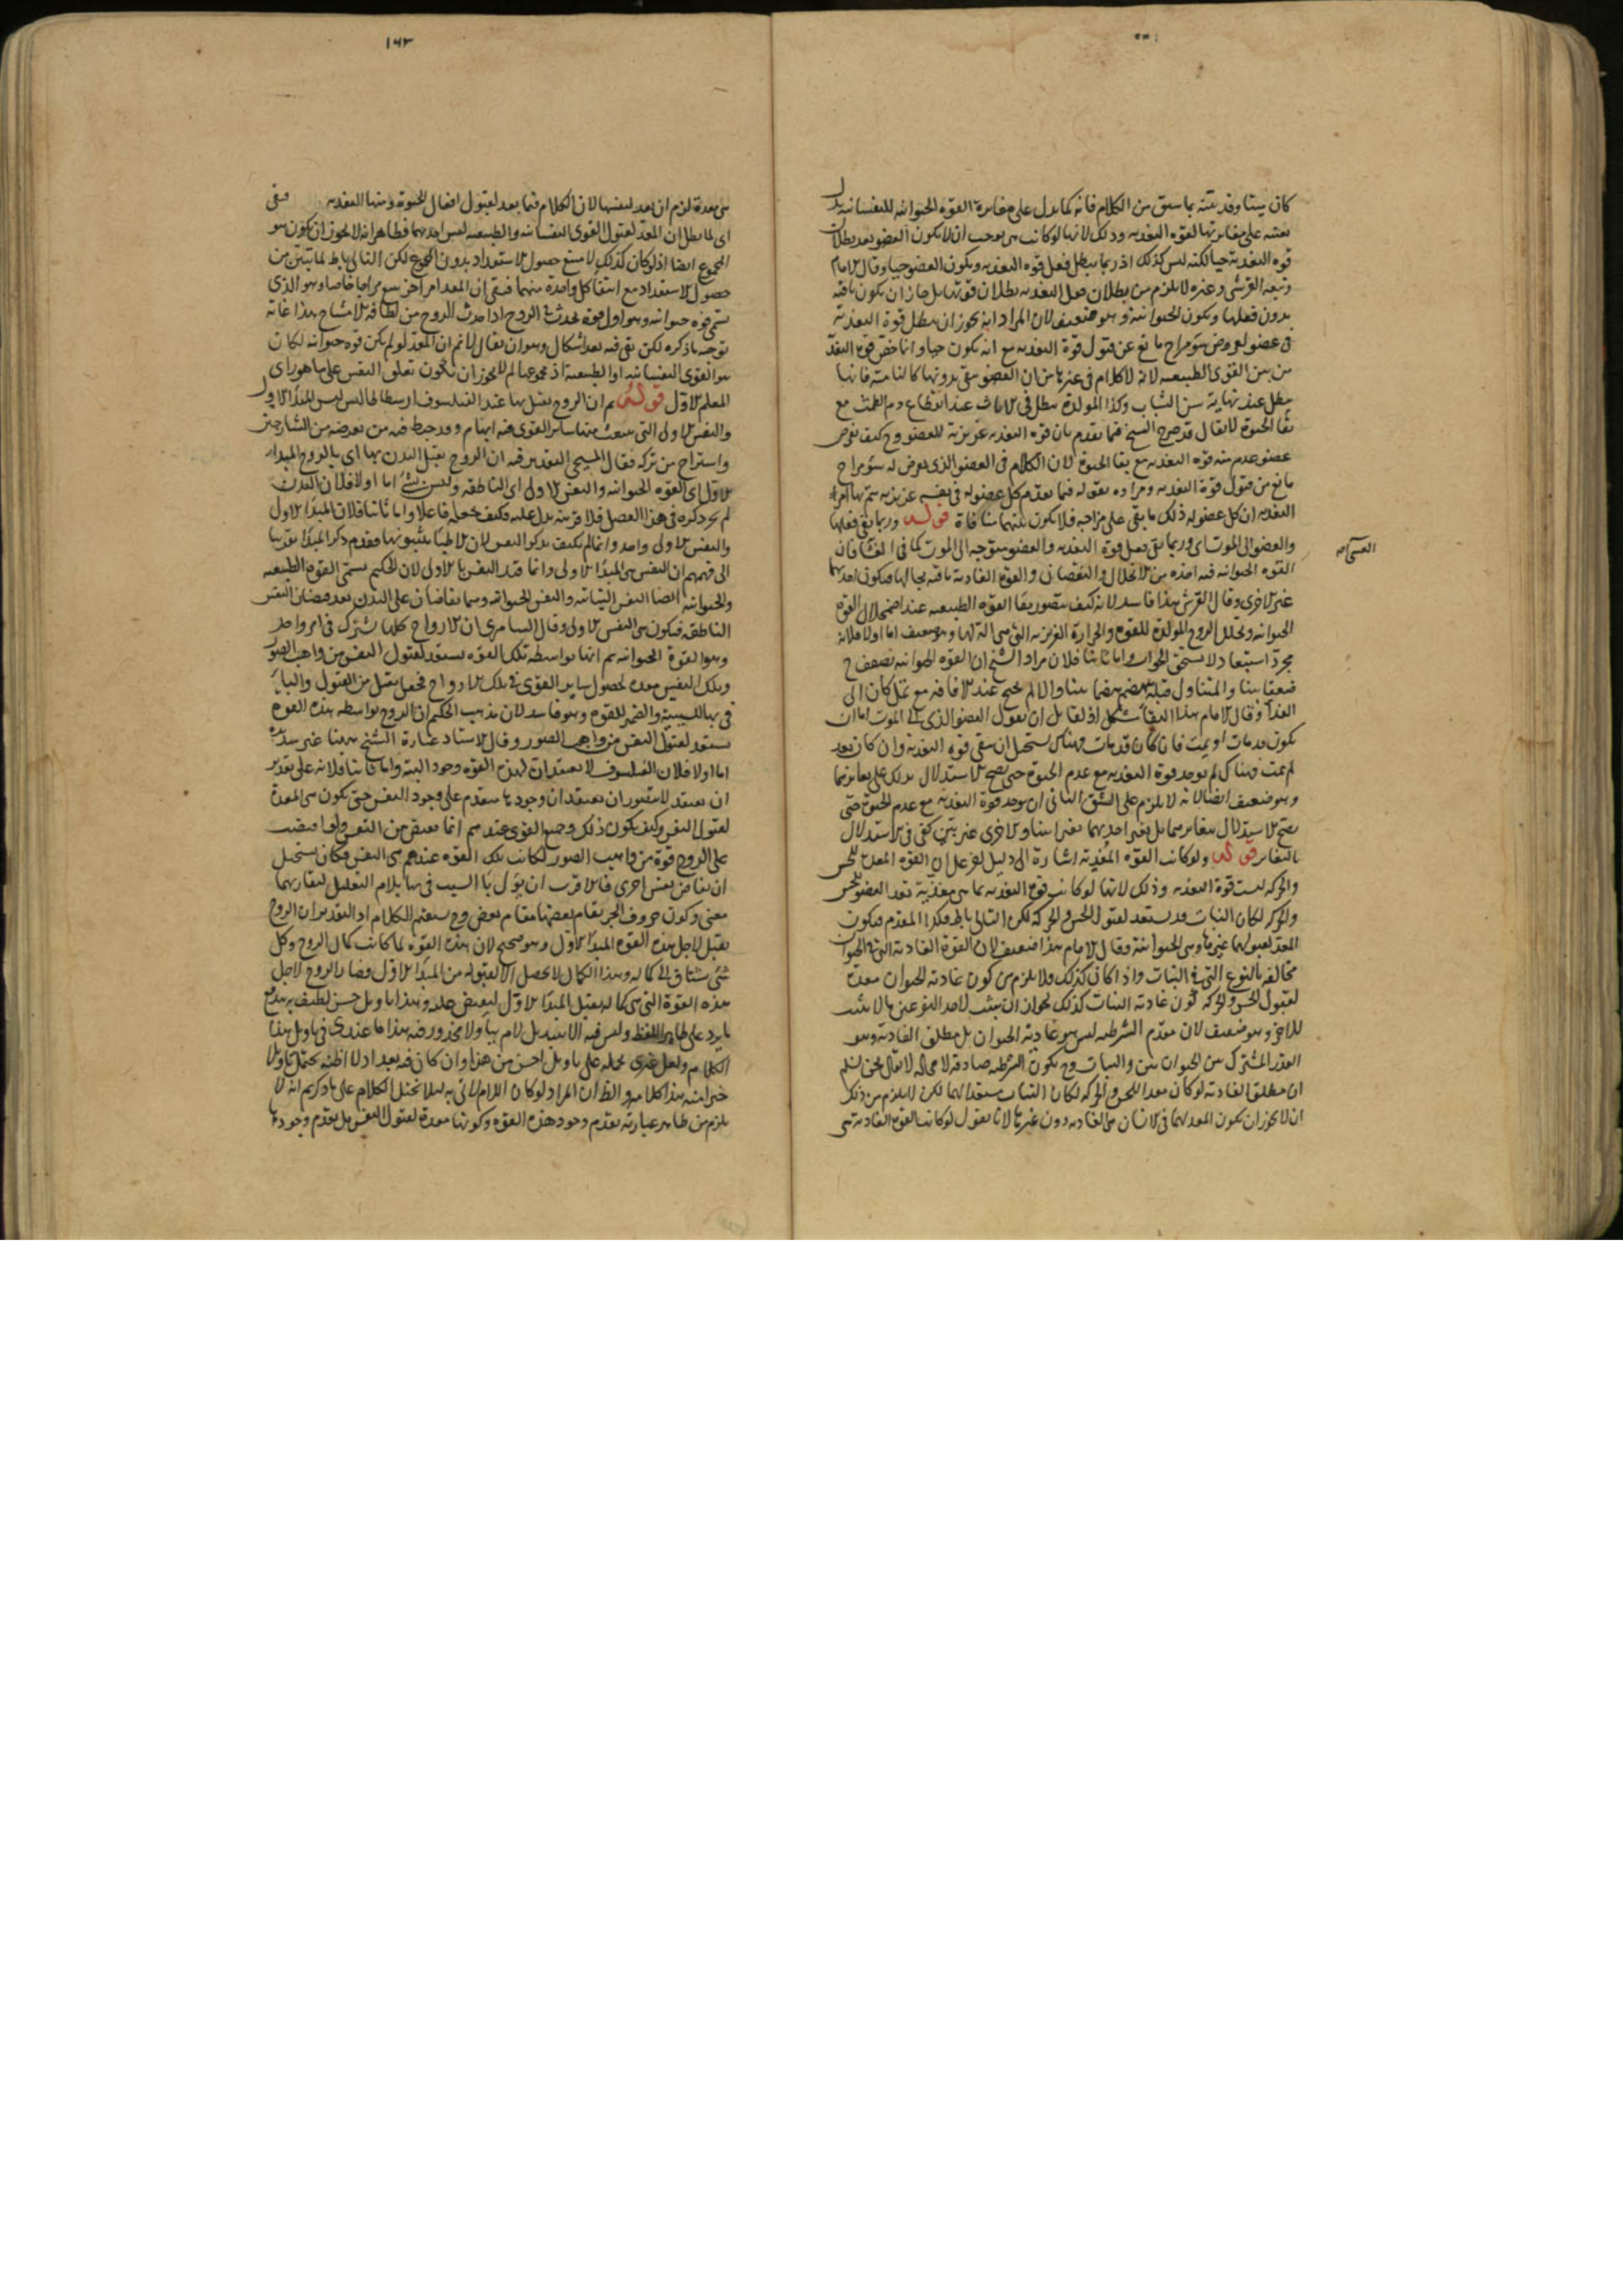 كان بينا وقد تبينه بما سبق من الكلام فانه كما يدل على مغايرة القوه الحيوانيه للنفسانيه يدل
بعينه على مغايرتها لقوه التغذيه وذلك لانها لو كانت هى يوجب ان لا يكون العضو بعد بطلان
قوه التغذية حيا لكنه ليس كذلك اذ ربما يبطل فعل قوه التغذيه ويكون العضو حيا وقال الامام
وتبعه القرشى وغيره لا يلزم من بطلان فعل التغذيه بطلان قوتها بل جاز ان يكون باقيه
بدون فعلها ويكون الحيوانية هى وهو ضعيف لان المراد انه يجوز ان يبطل قوة التغذية
فى عضو لعروض سو مزاج مانع عن قبول قوة التغذيه مع انه يكون حيا وانما خص قوه التغذ
من بين القوى الطبيعيه لانه لا كلام فى غيرها من ان العضو يبقى بدونها كالنامية فانها
يبطل عند نهاية سن الشباب وكذا المولدة يبطل فى الاناث عند انقطاع دم الطمث مع
بقا الحيوة لا يقال قد صرح الشيخ فيما تقدم بان قوه التغذيه غريزية للعضو وح كيف يعرض
عضو عدم منه قوه التغذيه مع بقا الحيوة لان الكلام فى العضو الذى يعرض له سو مزاج
مانع من قبول قوة التغذيه ومراده بقوله فيما تقدم كل عضو له فى نفسه غريزيه يتم بها امر
التغذيه ان كل عضو له ذلك ما بقى على مزاجه فلا يكون بينهما منافاة قوله وربما بقى فعلها
والعضو الى الموت اى وربما بقى فعل قوة التغذيه والعضو متوجه الى الموت كما فى فان
القوه الحيوانيه فيه اخذه من الانحلال والنقصان والقوه الغاذية باقيه بحالها فيكون احديهما
غير الاخرى وقال القرشى هذا فاسد لانه كيف يتصور بقا القوه الطبيعيه عند اضمحلال القوه
الحيوانيه وتحلل الروح المولدة للقوه والحرارة الغريزيه التى هى الة لها وهو ضعيف اما اولا فلانه
مجرد استبعاد لا يستحق الجواب واما ثانيا فلان مراد الشيخ ان القوه الحيوانيه تضعف ح
ضعفا بينا والمتناول قبله يهضم هضما بينا والا لم يحتج عند الافاقه مع كان الى
الغذا وقال الامام هذا البقاء مشكل اذ لقائل ان يقول العضو الذى الى الموت اما ان
يكون قد مات او لم يمت فان كان قد مات فهناك يستحيل ان يبقى قوه التغذية وان كان بعد
لم يمت فهناك لم يوجد قوة التغذيه مع عدم الحيوة حتى يصح الاستدلال بذلك على تغايرهما
وهو ضعيف ايضا لانه لا يلزم على الشق الثانى ان يوجد قوة التغذية مع عدم الحيوة حتى
يصح الاستدلال بتغايرهما بل بتغير احديهما تغيرا بينا والاخرى غير بين كفى فى الاستدلال
بالتغاير قوله ولو كانت القوه المغذية اشارة الى دليل اخر على ان القوه المعدة للحس
والحركه ليست قوة التغذيه وذلك لانها لو كانت قوه التغذيه بما هى مغذية تعد العضو للحس
والحركه لكان النبات قد يستعد لقبول الحس والحركة لكن التالى باطل فكذا المقدم فيكون
المعد لقبولهما غيرها وهى الحيوانية وقال الامام هذا ضعيف لان القوة الغاذية التى فى الحيوان
مخالفة بالنوع التى فى النبات واذا كان كذلك فلا يلزم من كون غاذية الحيوان معدة
لقبول الحس والحركه كون غاذية النبات كذلك لجواز ان يثبت لاحد النوعين ما لا يثبت
للاخر وهو ضعيف لان مقدم الشرطيه ليس هو غاذية الحيوان بل مطلق الغاذية وهو
القدر المشترك بين الحيوان وبين النبات وح يكون الشرطيه صادقة لا محاله لا يقال نحن نسلم
ان مطلق الغاذية لو كان معدا للحس والحركه لكان النبات مستعدا لهما لكن لا يلزم من ذلك
ان لا يجوز ان يكون المعد لهما فى الانسان هى الغاذيه دون غيرها لانا نقول لو كانت القوه الغاذية هى
١٦٣
هى معدة لزم ان يعد لنفسها لان الكلام فيما يعد لقبول افعال الحيوة ومنها التغذيه فبقى
اى لما بطل ان المعد لقبول القوى النفسانيه والطبيعيه ليس احديهما فظاهر انه لا يجوز ان يكون هو
المجموع ايضا اذ لو كان كذلك لامتنع حصول الاستعداد بدون المجموع لكن التالى باطل لما تبين من
حصول الاستعداد مع انتفا كل واحدة منهما فبقى ان المعد امر اخر يتبع مزاجا خاصا وهو الذى
يسمى قوه حيوانيه وهو اول قوه يحدث فى الروح اذا حدث الروح من لطافه الامشاج هذا غاية
توجيه ما ذكره لكن بقى فيه بعد اشكال وهو ان يقال لا نم ان المعد لو لم يكن قوه حيوانيه لكان
هو القوى النفسانيه او الطبيعية او مجموعهما لم لا يجوز ان يكون تعلق النفس على ما هو راى
المعلم الاول قوله ثم ان الروح يقبل بها عند الفيلسوف ارسطاطاليس المبدا الاول
والنفس الاولى التى ينبعث منها سائر القوى فيه ابهام وقد خبط فيه من تعرضه من الشارحين
واستراح من تركه فقال المسيحى التقدير فيه ان الروح يقبل البدن بها اى بالروح المبدا
الاول اى القوه الحيوانيه والنفس الاولى اى الناطقه وليس بشئ اما اولا فلان البدن
لم يجر ذكره فى هذا الفصل فلا قرينه يدل عليه فكيف يجعله فاعلا واما ثانيا فلان المبدا الاول
والنفس الاولى واحد وانما لم يكتف بذكر النفس لان الاطبا يثبتونها فقدم ذكر المبدا تقريبا
الى فهمهم ان النفس هى المبدا الاولى وانما قيد النفس بالاولى لان الحكيم يسمى القوه الطبيعيه
والحيوانيه ايضا النفس النباتيه والنفس الحيوانيه وهما يفاضان على البدن بعد فيضان النفس
الناطقه فيكون هى النفس الاولى وقال السامرى ان الارواح كلها يشترك فى امر واحد
وهو القوة الحيوانيه ثم انها بواسطة تلك القوه يستعد لقبول النفس من واهب الصور
وتلك النفس معده لحصول سائر القوى فى تلك الارواح فجعل يقبل من القبول والبا
فى بها للسببية والضمير للقوه وهو فاسد لان مذهب الحكيم ان الروح بواسطه هذه القوه
يستعد لقبول النفس من واهب الصور وقال الاستاد عبارة الشيخ ههنا غير سديدة
اما اولا فلان الفيلسوف لا يعتقد ان لهذه القوه وجودا البته واما ثانيا فلانه على تقدير
ان يعتقد لا يتصور ان يعتقد ان وجودها متقدم على وجود النفس حتى يكون هى المعدة
لقبول النفس وكيف يكون ذلك وجميع القوى عندهم انما تفيض من النفس ولو افيضت
على الروح قوة من واهب الصور لكانت تلك القوه عندهم هى النفس فكان يستحيل
ان يفاض نفس اخرى فالاقرب ان يؤل با السبب فى بها بلام التعليل لتقاربهما
معنى وكون حروف الجر يقام بعضها مقام بعض وح يستقيم الكلام اذ التقدير ان الروح
يقبل لاجل هذه القوه المبدا الاول وهو صحيح لان هذه القوه لما كانت كمال الروح وكل
شئ مشتاق الى كماله وهذا الكمال لا يحصل الا بقبوله من المبدا الاول فصار الروح لاجل
هذه القوة التى هى كماله يقبل المبدا الاول ليفيض عليه وهذا تاويل حسن لطيف به يندفع
ما يرد على ظاهر اللفظ وليس فيه الا تبديل لام ببا ولا محذور فيه هذا ما عندى فى تاويل هذا
الكلام ولعل غيرى يحمله على تاويل احسن من هذا وان كان فيه بعد اذ لا اظنه يحتمل تاويلا
خيرا منه هذا كلامه والظ ان المراد لو كان اللام لاتى به لئلا يختل الكلام على ما ذكرتم انه لا
يلزم من ظاهر عبارته تقدم وجود هذه القوه وكونها معدة لقبول النفس بل تقدم وجودها